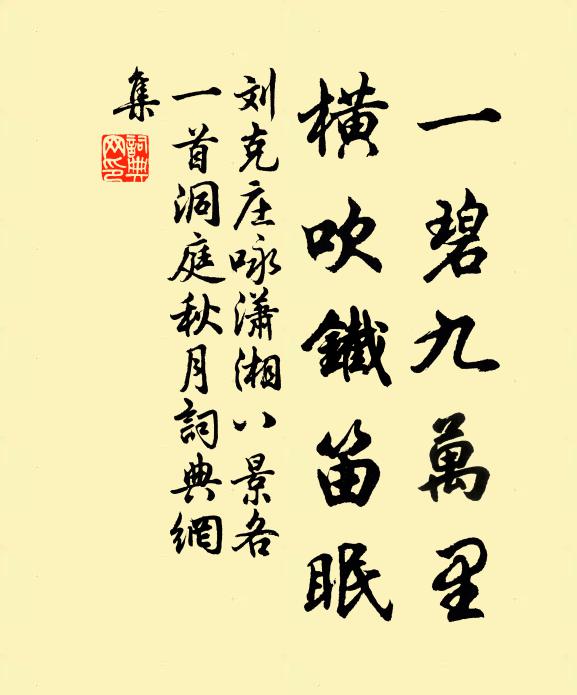 一碧九萬里
横吹鐵笛眠
刘克庄咏瀟湘八景各
一首洞庭秋月詞典網
集
詞典
网印